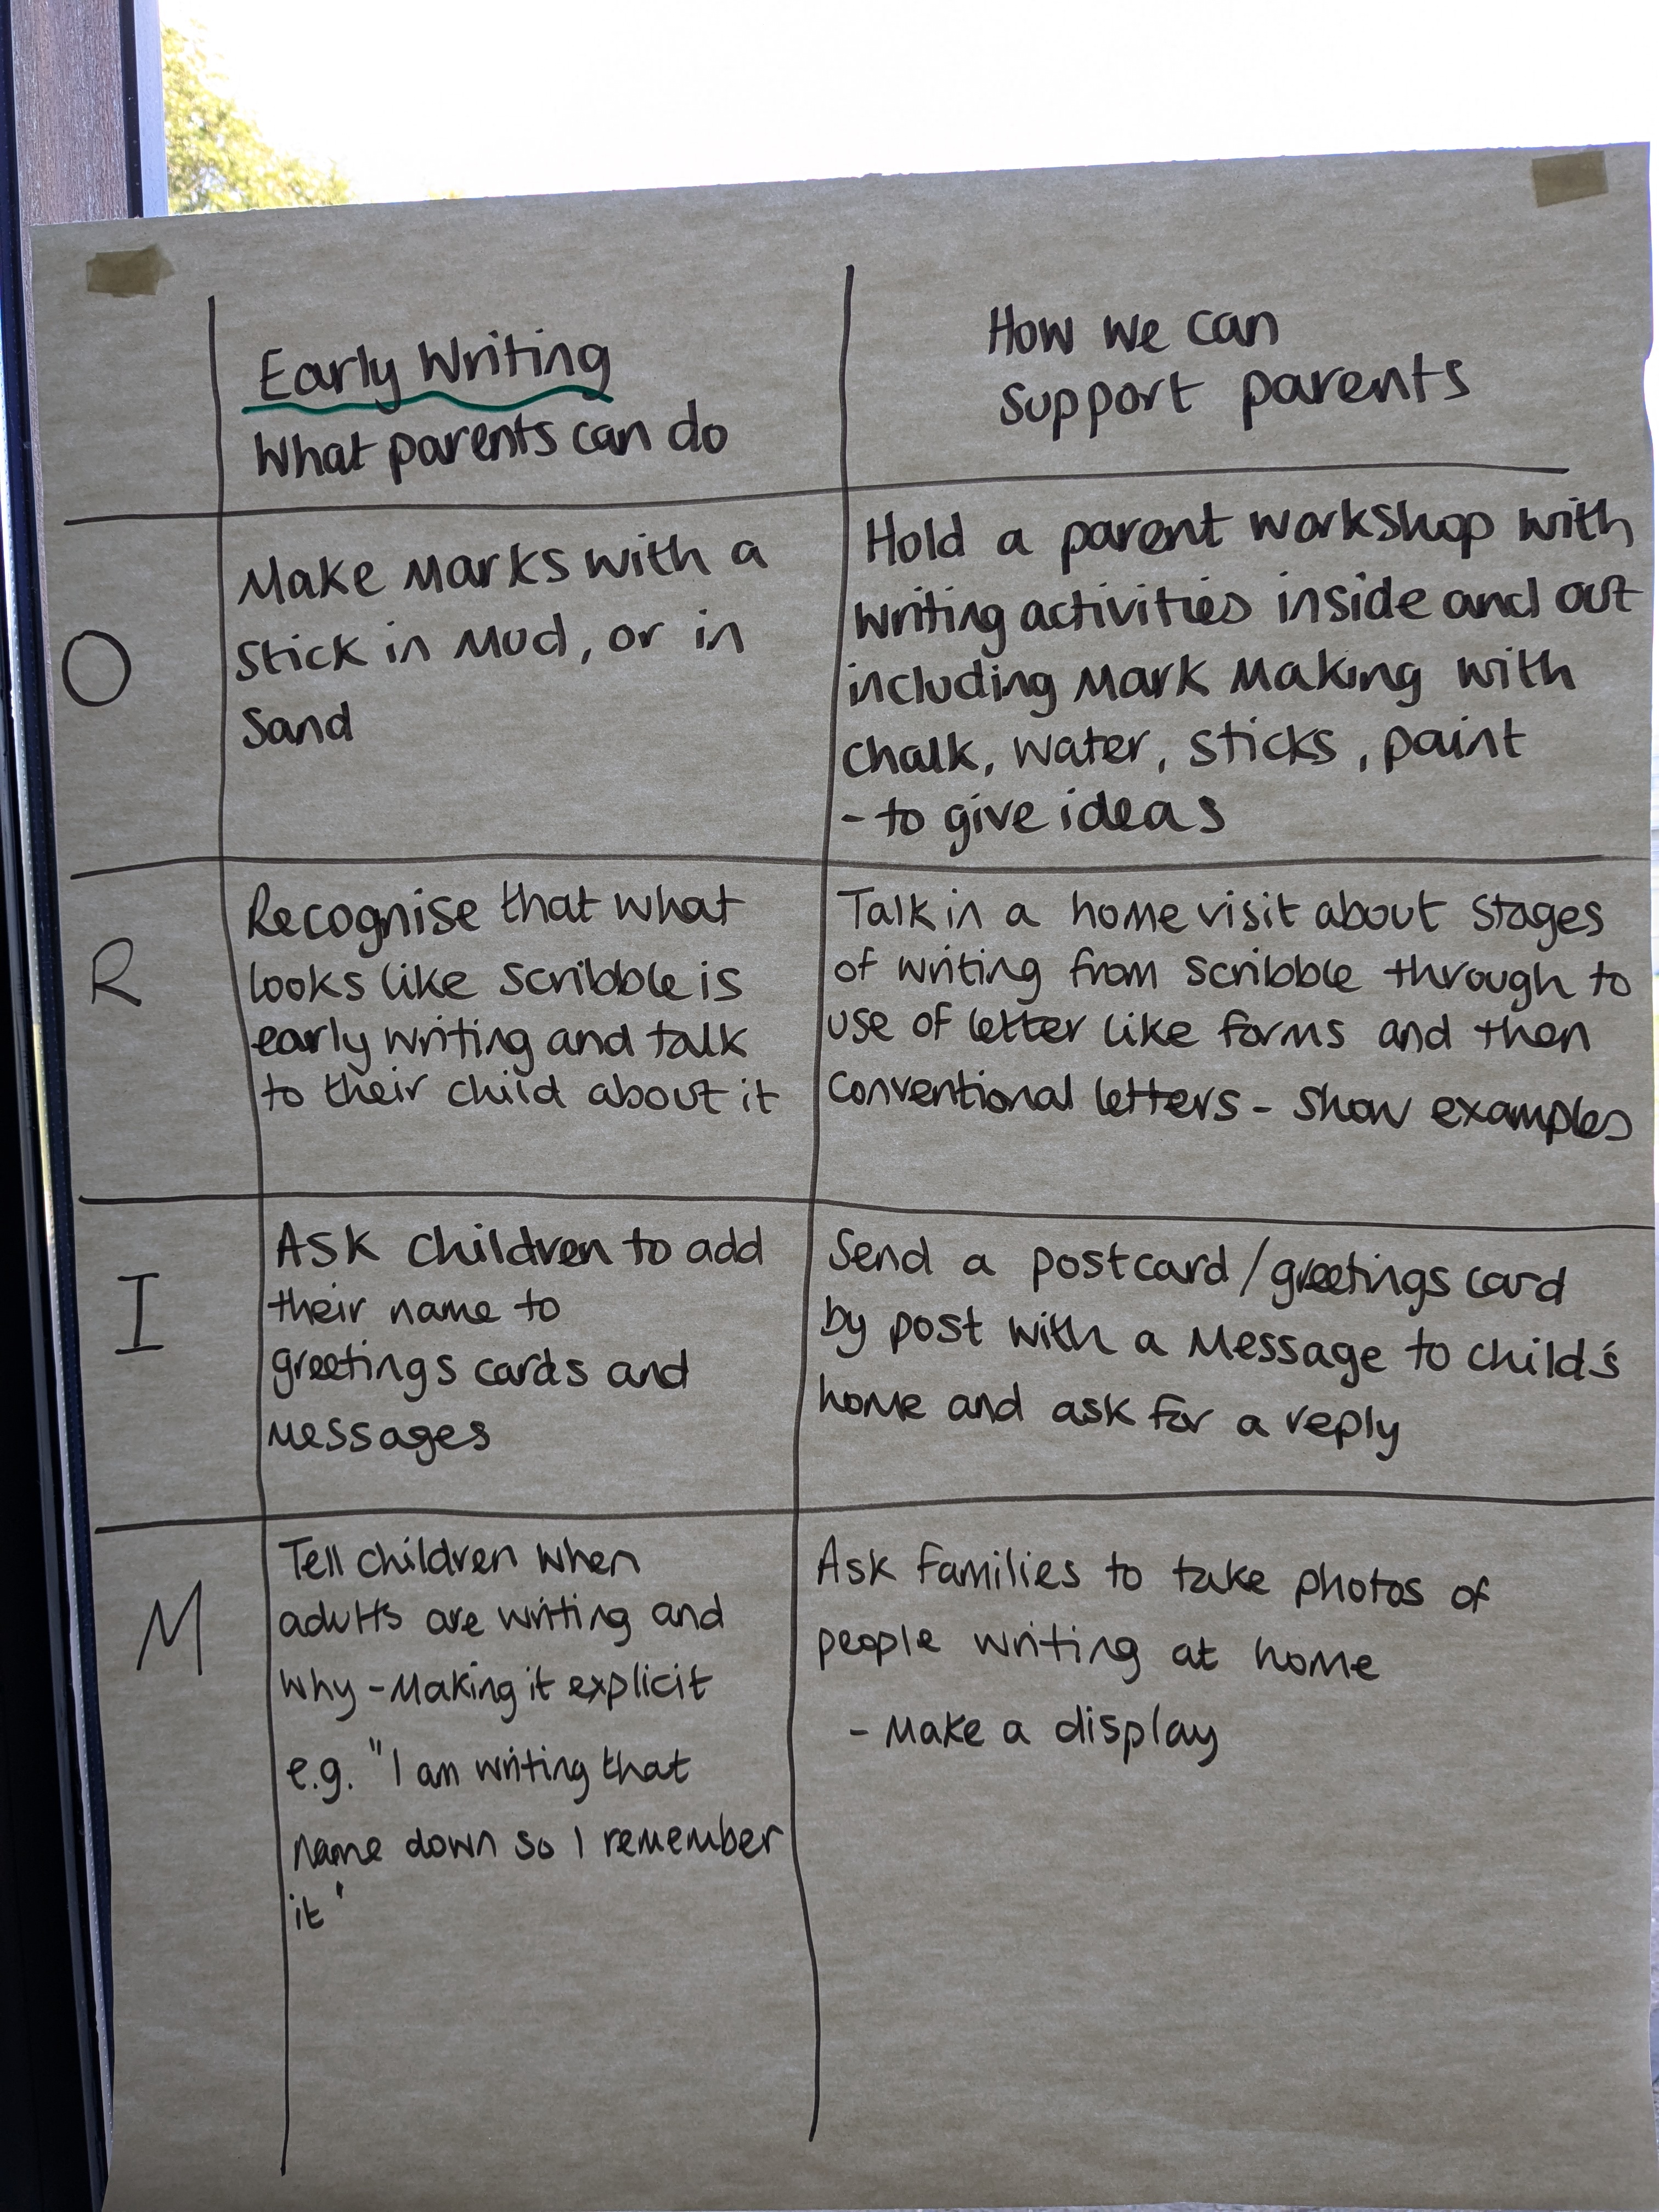 Early Writing
What parents can do
How we can
support parents
O
Make marks with a
stick in mud, or in
sand
Hold a parent workshop with
writing activities inside and out
including mark making with
chalk, water, sticks, paint
- to give ideas
R
Recognise that what
looks like scribble is
early writing and talk
to their child about it
Talk in a home visit about stages
of writing from scribble through to
use of letter like forms and then
conventional letters - show examples
I
Ask children to add
their name to
greetings cards and
messages
Send a postcard/greetings card
by post with a message to child's
home and ask for a reply
M
Tell children when
adults are writing and
why - making it explicit
e.g. "I am writing that
name down so I remember
it'
Ask families to take photos of
people writing at home
- make a display